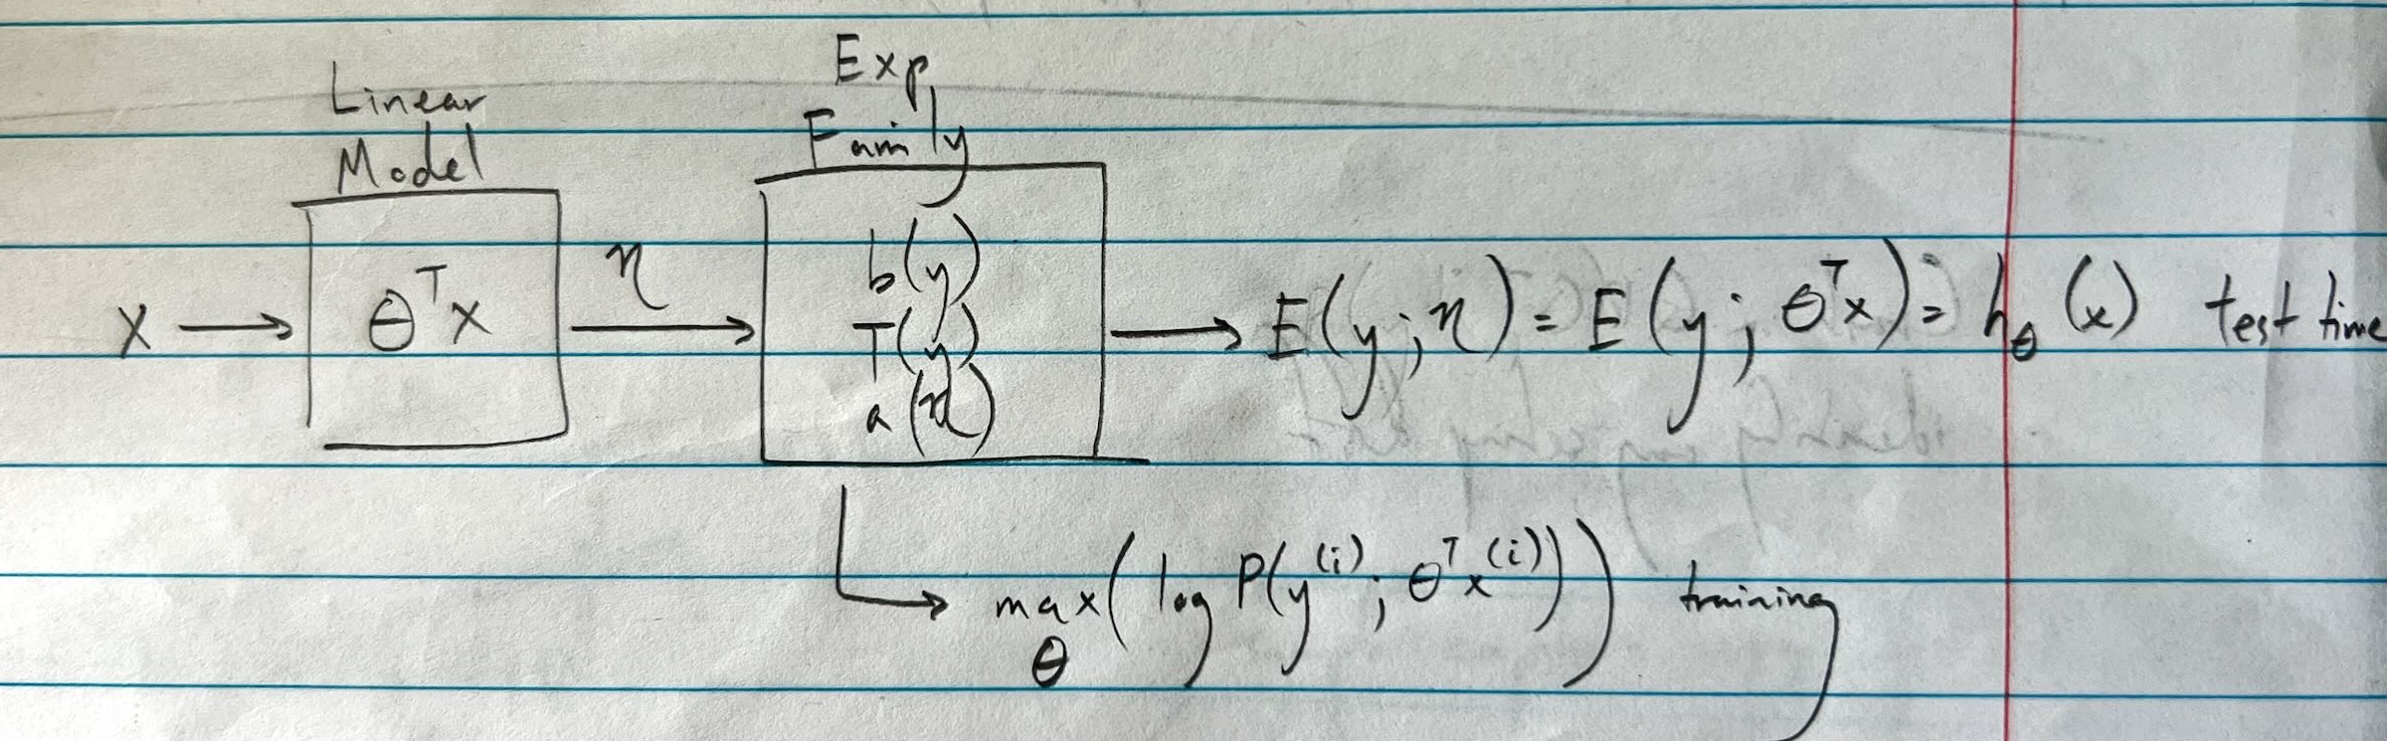 Linear
Model
Exp
Family
x → θᵀx
η →
b(y)
T(y)
a(η)
→ E(y; η) = E(y; θᵀx) = h_θ(x) test time
→ max_θ (log P(y⁽ⁱ⁾; θᵀx⁽ⁱ⁾)) training